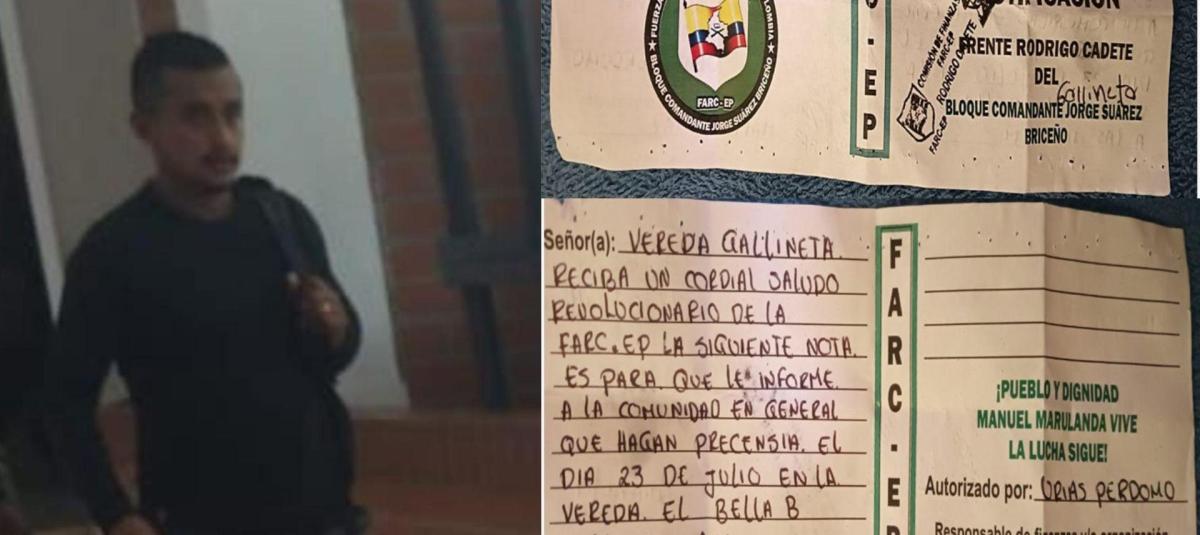 FARC-EP
BLOQUE COMANDANTE JORGE SUÁREZ BRICEÑO
- E P
COMISIÓN DE FINANZAS
FARC-EP
RODRIGO CADETE
FARC-EP
FRENTE RODRIGO CADETE
DEL
Gallineta
BLOQUE COMANDANTE JORGE SUÁREZ
BRICEÑO
Señor(a): VEREDA GALLINETA.
RECIBA UN CORDIAL SALUDO
REVOLUCIONARIO DE LA
FARC.EP LA SIGUIENTE NOTA.
ES PARA. QUE LE INFORME.
A LA COMUNIDAD EN GENERAL
QUE HAGAN PRECENSIA. EL
DIA 23 DE JULIO EN LA
VEREDA. EL BELLA B
FARC-EP
¡PUEBLO Y DIGNIDAD
MANUEL MARULANDA VIVE
LA LUCHA SIGUE!
Autorizado por: URIAS PERDOMO
Responsable de finanzas y/o organización